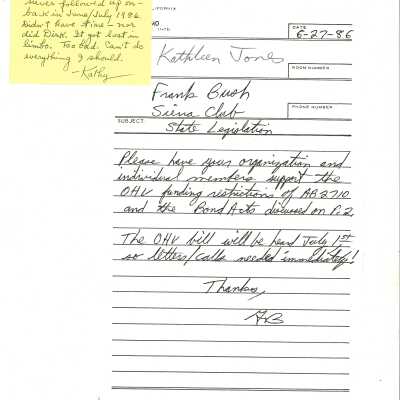 never followed up on-
back in June/July 1986
Didn't have time - nor
did Dirk. It got lost in
limbo. Too bad. Can't do
everything I should.
- Kathy
DATE
6-27-86
Kathleen Jones
ROOM NUMBER
Frank Bush
Sierra Club
PHONE NUMBER
SUBJECT
State Legislation
Please have your organization and
individual members support the
OHV funding restrictions of AB2710
and the Bond Acts discussed on P. 2.
The OHV bill will be heard July 1st
so letters/calls needed immediately!
Thanks,
FB